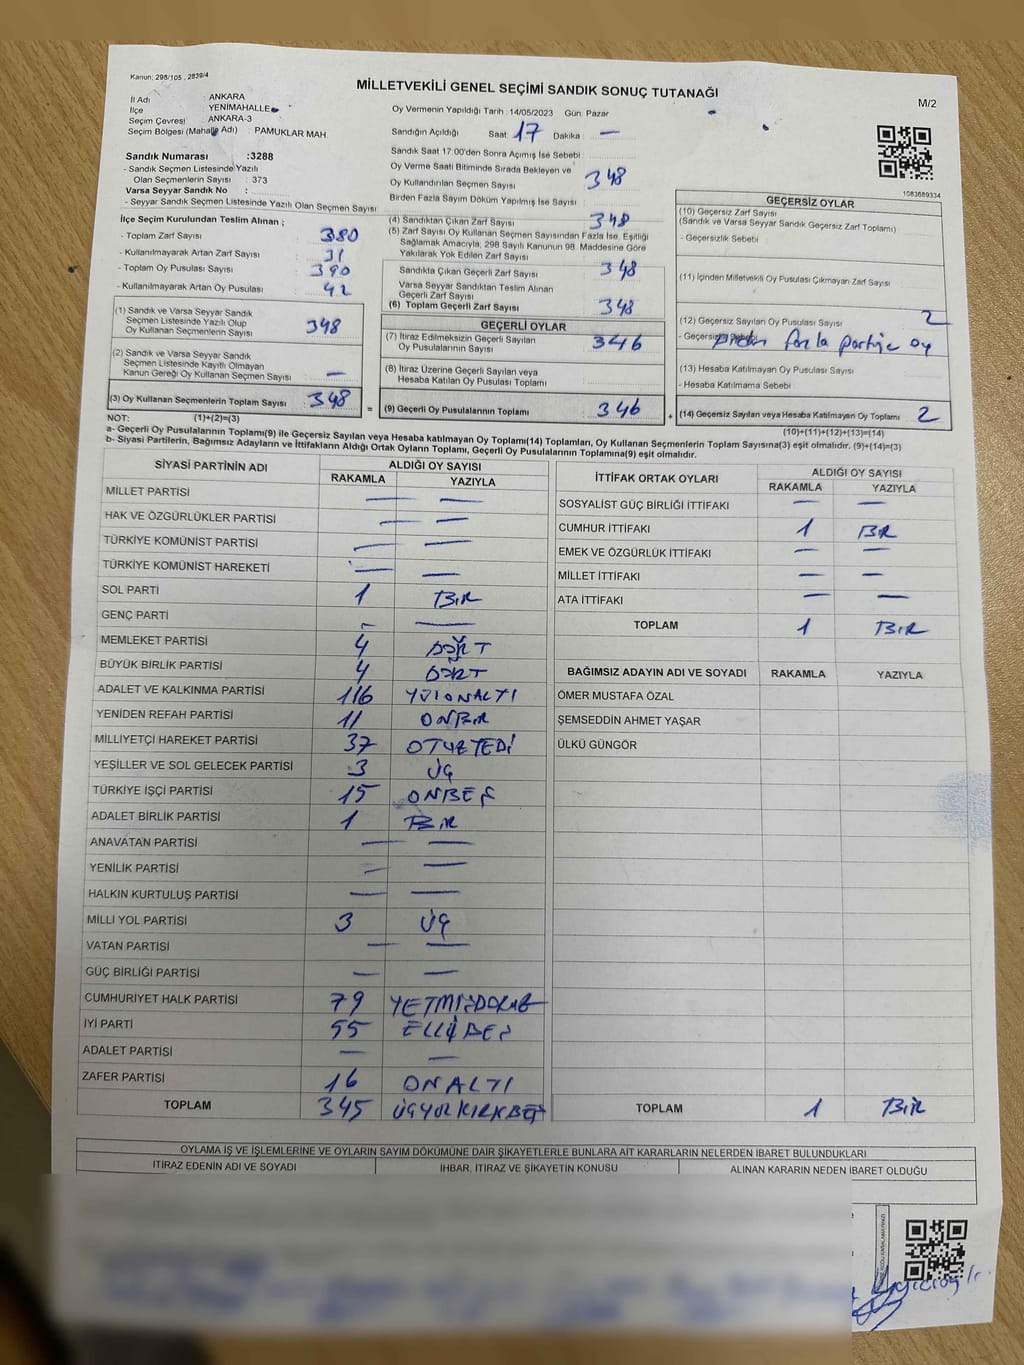 Kanun: 298/105 , 2839/4
MİLLETVEKİLİ GENEL SEÇİMİ SANDIK SONUÇ TUTANAĞI
M/2
İl Adı : ANKARA
İlçe : YENİMAHALLE
Seçim Çevresi : ANKARA-3
Seçim Bölgesi (Mahalle Adı) : PAMUKLAR MAH.
Sandık Numarası :3288
- Sandık Seçmen Listesinde Yazılı
Olan Seçmenlerin Sayısı : 373
Varsa Seyyar Sandık No :
- Seyyar Sandık Seçmen Listesinde Yazılı Olan Seçmen Sayısı
Oy Vermenin Yapıldığı Tarih : 14/05/2023 Gün: Pazar
Sandığın Açıldığı Saat: 17 Dakika : —
Sandık Saat 17:00'den Sonra Açımış İse Sebebi :
Oy Verme Saati Bitiminde Sırada Bekleyen ve
Oy Kullandırılan Seçmen Sayısı : 348
Birden Fazla Sayım Döküm Yapılmış İse Sayısı :
1083689334
İlçe Seçim Kurulundan Teslim Alınan ;
- Toplam Zarf Sayısı : 380
- Kullanılmayarak Artan Zarf Sayısı : 31
- Toplam Oy Pusulası Sayısı : 390
- Kullanılmayarak Artan Oy Pusulası : 42
(1) Sandık ve Varsa Seyyar Sandık
Seçmen Listesinde Yazılı Olup
Oy Kullanan Seçmenlerin Sayısı : 348
(2) Sandık ve Varsa Seyyar Sandık
Seçmen Listesinde Kayıtlı Olmayan
Kanun Gereği Oy Kullanan Seçmen Sayısı : —
(3) Oy Kullanan Seçmenlerin Toplam Sayısı : 348
(4) Sandıktan Çıkan Zarf Sayısı : 348
(5) Zarf Sayısı Oy Kullanan Seçmen Sayısından Fazla İse, Eşitliği
Sağlamak Amacıyla, 298 Sayılı Kanunun 98. Maddesine Göre
Yakılarak Yok Edilen Zarf Sayısı :
Sandıkta Çıkan Geçerli Zarf Sayısı : 348
Varsa Seyyar Sandıktan Teslim Alınan
Geçerli Zarf Sayısı :
(6) Toplam Geçerli Zarf Sayısı : 348
GEÇERLİ OYLAR
(7) İtiraz Edilmeksizin Geçerli Sayılan
Oy Pusulalarının Sayısı : 346
(8) İtiraz Üzerine Geçerli Sayılan veya
Hesaba Katılan Oy Pusulası Toplamı :
= (9) Geçerli Oy Pusulalarının Toplamı : 346
GEÇERSİZ OYLAR
(10) Geçersiz Zarf Sayısı
(Sandık ve Varsa Seyyar Sandık Geçersiz Zarf Toplamı) :
- Geçersizlik Sebebi :
(11) İçinden Milletvekili Oy Pusulası Çıkmayan Zarf Sayısı :
(12) Geçersiz Sayılan Oy Pusulası Sayısı : 2
fazla partiye oy
(13) Hesaba Katılmayan Oy Pusulası Sayısı :
- Hesaba Katılmama Sebebi :
+ (14) Geçersiz Sayılan veya Hesaba Katılmayan Oy Toplamı : 2
NOT: (1)+(2)=(3)
(10)+(11)+(12)+(13)=(14)
a- Geçerli Oy Pusulalarının Toplamı(9) ile Geçersiz Sayılan veya Hesaba katılmayan Oy Toplamı(14) Toplamları, Oy Kullanan Seçmenlerin Toplam Sayısına(3) eşit olmalıdır. (9)+(14)=(3)
b- Siyasi Partilerin, Bağımsız Adayların ve İttifakların Aldığı Ortak Oyların Toplamı, Geçerli Oy Pusulalarının Toplamına(9) eşit olmalıdır.
SİYASİ PARTİNİN ADI ALDIĞI OY SAYISI
RAKAMLA YAZIYLA
MİLLET PARTİSİ — —
HAK VE ÖZGÜRLÜKLER PARTİSİ — —
TÜRKİYE KOMÜNİST PARTİSİ — —
TÜRKİYE KOMÜNİST HAREKETİ — —
SOL PARTİ 1 BİR
GENÇ PARTİ — —
MEMLEKET PARTİSİ 4 DÖRT
BÜYÜK BİRLİK PARTİSİ 4 DÖRT
ADALET VE KALKINMA PARTİSİ 116 YÜZONALTI
YENİDEN REFAH PARTİSİ 11 ONBİR
MİLLİYETÇİ HAREKET PARTİSİ 37 OTUZYEDİ
YEŞİLLER VE SOL GELECEK PARTİSİ 3 ÜÇ
TÜRKİYE İŞÇİ PARTİSİ 15 ONBEŞ
ADALET BİRLİK PARTİSİ 1 BİR
ANAVATAN PARTİSİ — —
YENİLİK PARTİSİ — —
HALKIN KURTULUŞ PARTİSİ — —
MİLLİ YOL PARTİSİ 3 ÜÇ
VATAN PARTİSİ — —
GÜÇ BİRLİĞİ PARTİSİ — —
CUMHURİYET HALK PARTİSİ 79 YETMİŞDOKUZ
İYİ PARTİ 55 ELLİBEŞ
ADALET PARTİSİ — —
ZAFER PARTİSİ 16 ONALTI
TOPLAM 345 ÜÇYÜZKIRKBEŞ
İTTİFAK ORTAK OYLARI ALDIĞI OY SAYISI
RAKAMLA YAZIYLA
SOSYALİST GÜÇ BİRLİĞİ İTTİFAKI — —
CUMHUR İTTİFAKI 1 BİR
EMEK VE ÖZGÜRLÜK İTTİFAKI — —
MİLLET İTTİFAKI — —
ATA İTTİFAKI — —
TOPLAM 1 BİR
BAĞIMSIZ ADAYIN ADI VE SOYADI RAKAMLA YAZIYLA
ÖMER MUSTAFA ÖZAL
ŞEMSEDDİN AHMET YAŞAR
ÜLKÜ GÜNGÖR
TOPLAM 1 BİR
OYLAMA İŞ VE İŞLEMLERİNE VE OYLARIN SAYIM DÖKÜMÜNE DAİR ŞİKAYETLERLE BUNLARA AİT KARARLARIN NELERDEN İBARET BULUNDUKLARI
İTİRAZ EDENİN ADI VE SOYADI İHBAR, İTİRAZ VE ŞİKAYETİN KONUSU ALINAN KARARIN NEDEN İBARET OLDUĞU